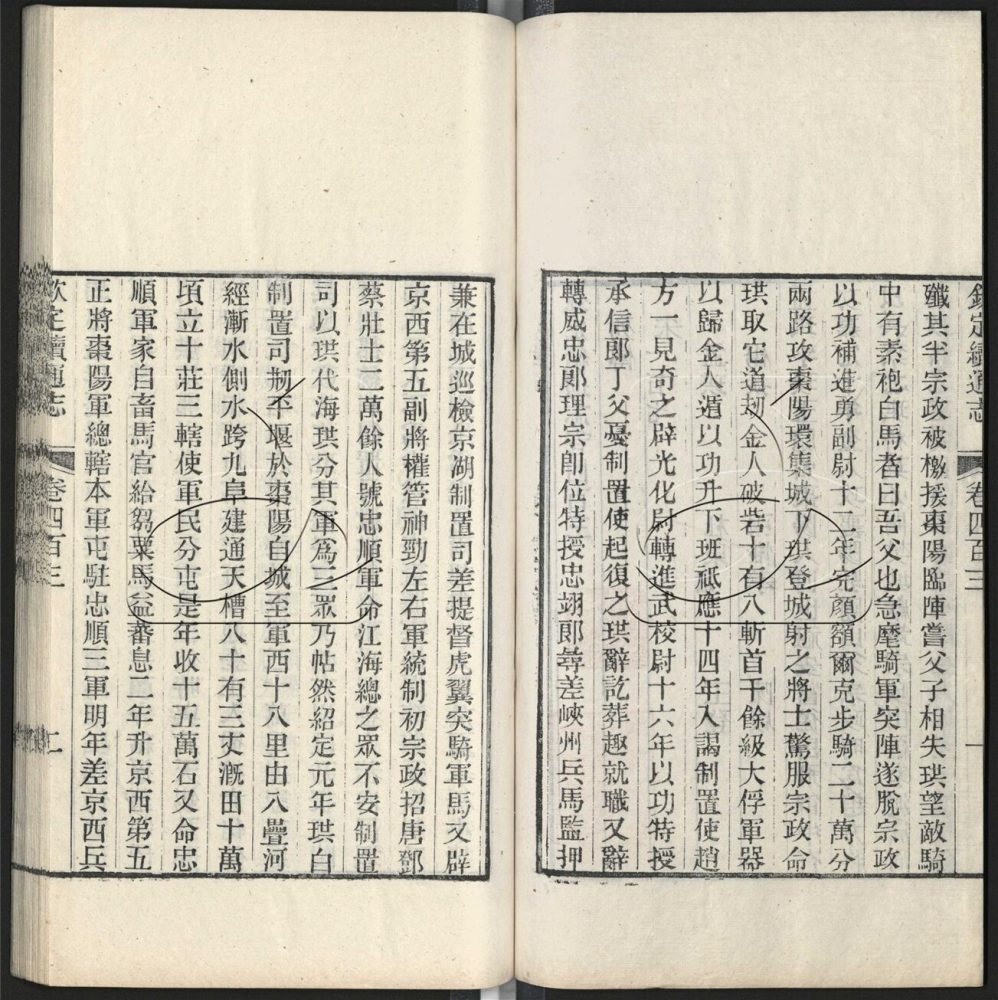 欽定續通志 卷四百三 一
殲其半宗政被檄援棗陽臨陣嘗父子相失珙望敵騎
中有素袍白馬者曰吾父也急麾騎軍突陣遂脫宗政
以功補進勇副尉十二年完顏額爾克步騎二十萬分
兩路攻棗陽環集城下珙登城射之將士驚服宗政命
珙取它道刼金人破砦十有八斬首千餘級大俘軍器
以歸金人遁以功升下班祗應十四年入謁制置使趙
方一見奇之辟光化尉轉進武校尉十六年以功特授
承信郞丁父憂制置使起復之珙辭訖葬趣就職又辭
轉威忠郞理宗卽位特授忠翊郞尋差峽州兵馬監押
兼在城巡檢京湖制置司差提督虎翼突騎軍馬又辟
京西第五副將權管神勁左右軍統制初宗政招唐鄧
蔡壯士二萬餘人號忠順軍命江海總之眾不安制置
司以珙代海珙分其軍爲三眾乃帖然紹定元年珙白
制置司刱平堰於棗陽自城至軍西十八里由八疊河
經漸水側水跨九阜建通天槽八十有三丈漑田十萬
頃立十莊三轄使軍民分屯是年收十五萬石又命忠
順軍家自畜馬官給芻粟馬益蕃息二年升京西第五
正將棗陽軍總轄本軍屯駐忠順三軍明年差京西兵
欽定續通志 卷四百三 二